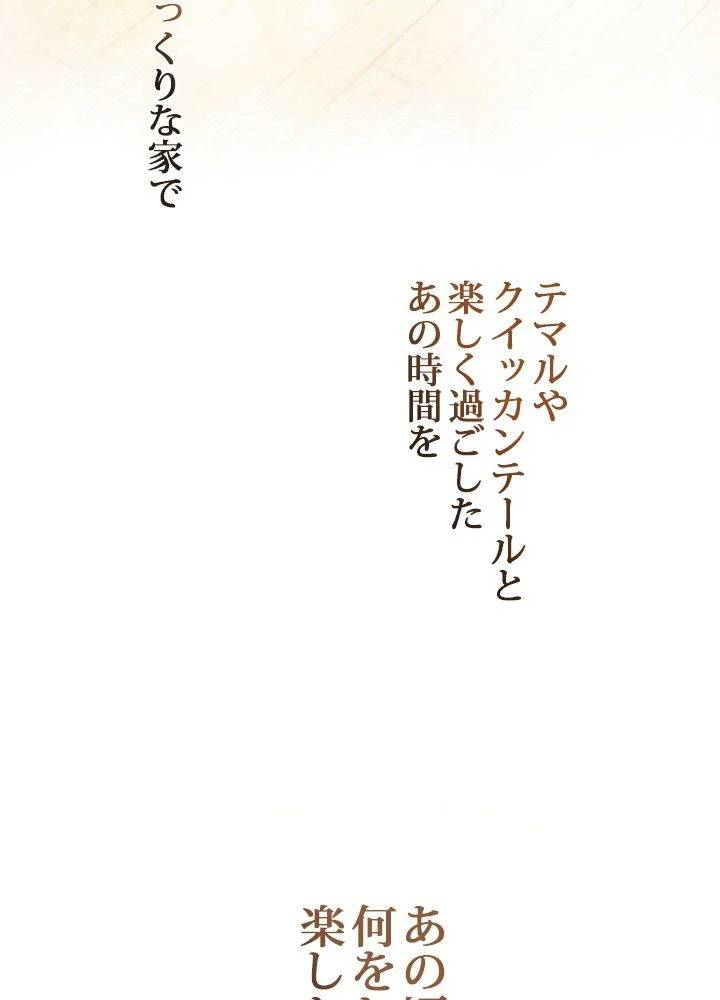 っくりな家で
テマルや
クイッカンテールと
楽しく過ごした
あの時間を
あの
何を
楽し